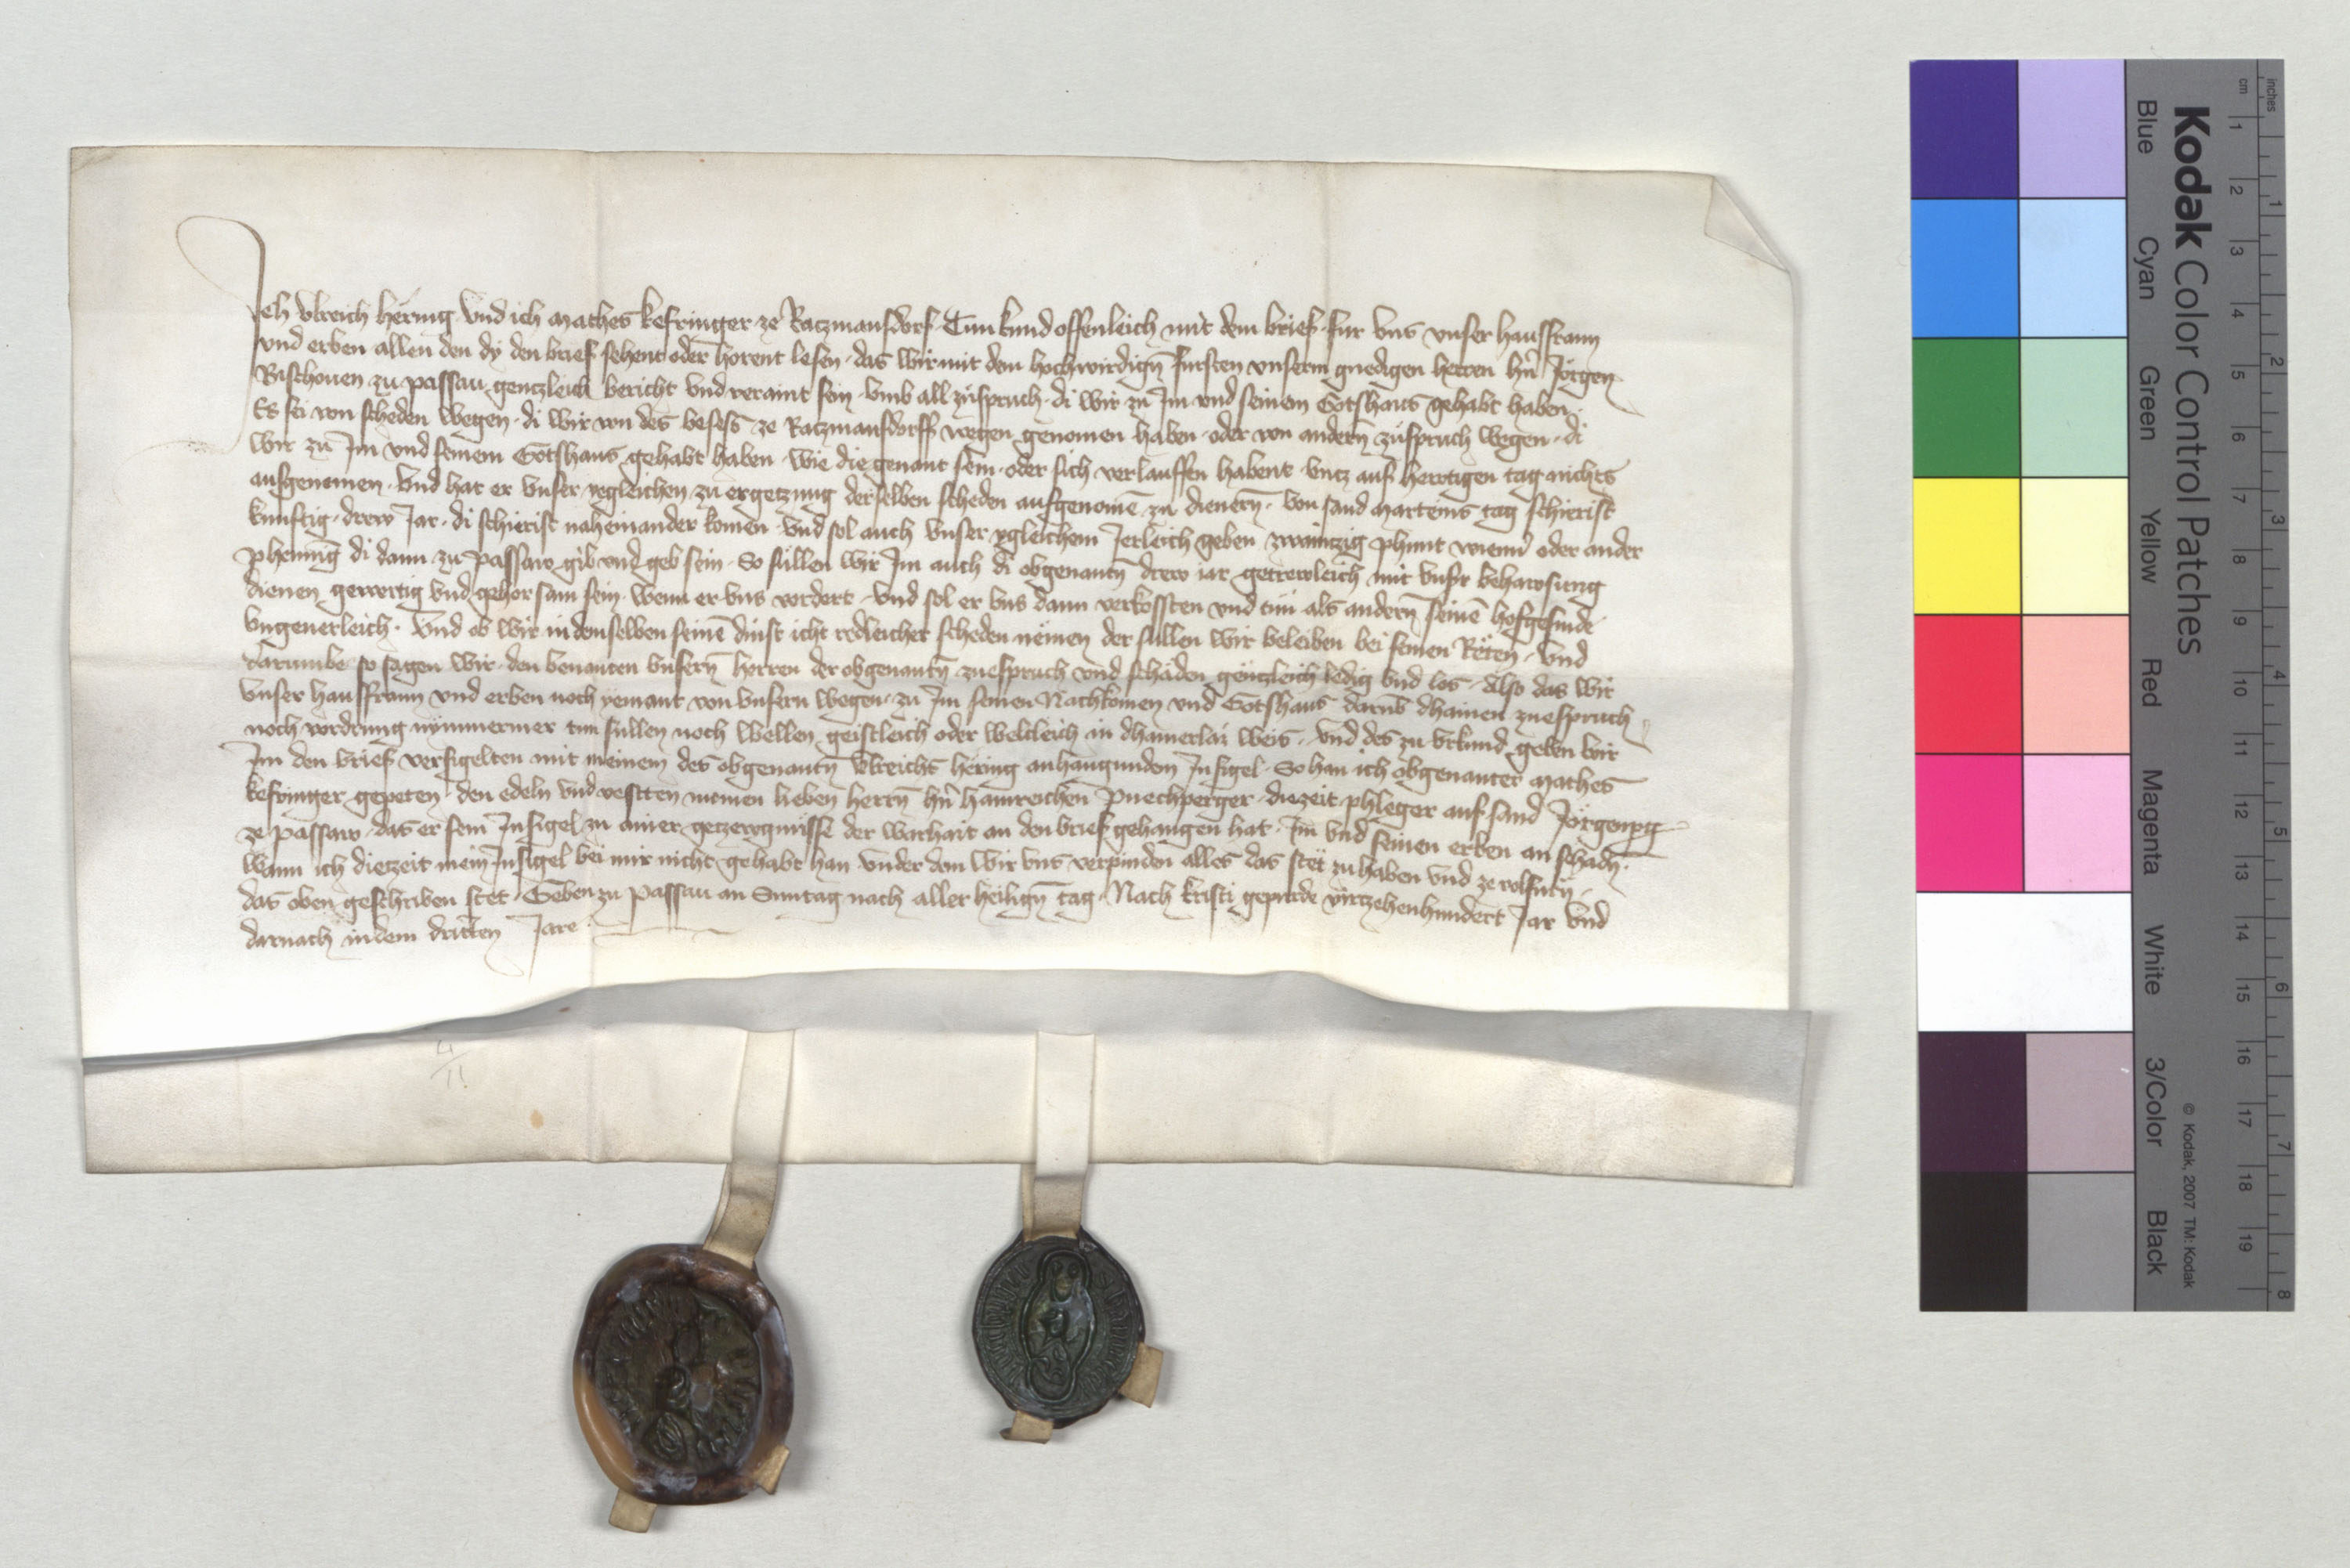 Ich Ulreich Hering und ich Mathes kefringer ze Ratzmansdorf Tun kund offenleich mit dem brief fur uns unser hausfrawn
und erben allen den dy den brief sehent oder horent lesen das wir mit dem hochwirdign fursten unserm gnedigen herren hn Jorgen
Bischouen zu passau gentzleich bericht und veraint sein umb all zuspruch di wir zu Im und seinem Gotshaus gehabt haben
Es sei von scheden wegen di wir von des besess ze Ratzmansdorff wegen genomen haben oder von andern zuspruch wegen di
wir zu Im und seinem Gotshaus gehabt haben wie die genant sein oder sich verlauffen habent untz auf hewtigen tag nichts
ausgenomen Und hat er unser ygleichen zu ergetzung derselben scheden aufgenome zu dienern von sand marteins tag schirist
kunftig drew Jar di schierist nacheinander komen und sol auch unser ygleichem Jerleich geben zwaintzig phunt wienn oder ander
phening di dann zu passaw gib und geb sein So sullen wir Im auch di obgenantn drew iar getrewleich mit unsr behawsung
dienen gewertig und gehorsam sein wenn er uns vordert und sol er uns dann verkossten und tun als andern seine hofgesinde
ungeuerleich Und ob wir in demselben seine dinst icht redleicher scheden nemen der sullen wir beleiben bei seinen Reten Und
darumbe so sagen wir den benanten unsern herren der obgenantn zuespruch und schaden gentzleich ledig und los Also das wir
unser hausfrawn und erben noch yemant von unsern wegen zu Im seinen Nachkomen und Gotshaus darub dhainen zuespruch
noch vordrung nymmermer tun sullen noch wellen geistleich oder weltleich in dhainerlai weis und des zu urkund geben wir
Im den brief versigelten mit meinem des obgenantn Ulreichs hering anhangunden Insigel So han ich obgenanter mathes
kefringer gepeten den edeln und vestten meinen lieben herrn hn hainreichen Puechperger diezeit phleger auf sand Jorgenpg
ze passaw das er sein Insigel zu ainer getzewgnusse der warhait an den brief gehangen hat Im und seinen erben an schadn
wann ich dietzeit mein Insigel bei mir nicht gehabt han under dem wir uns verpinden alles das stet zu haben und ze volfurn
das oben geschriben stet Geben zu passau an Suntag nach aller heilign tag Nach kristi gepurde virtzehenhundert Jar und
darnach in dem dritten Jare
4/11
Kodak Color Control Patches
Blue Cyan Green Yellow Red Magenta White 3/Color Black
© Kodak, 2007 TM: Kodak
cm 1 2 3 4 5 6 7 8 9 10 11 12 13 14 15 16 17 18 19
inches 1 2 3 4 5 6 7 8